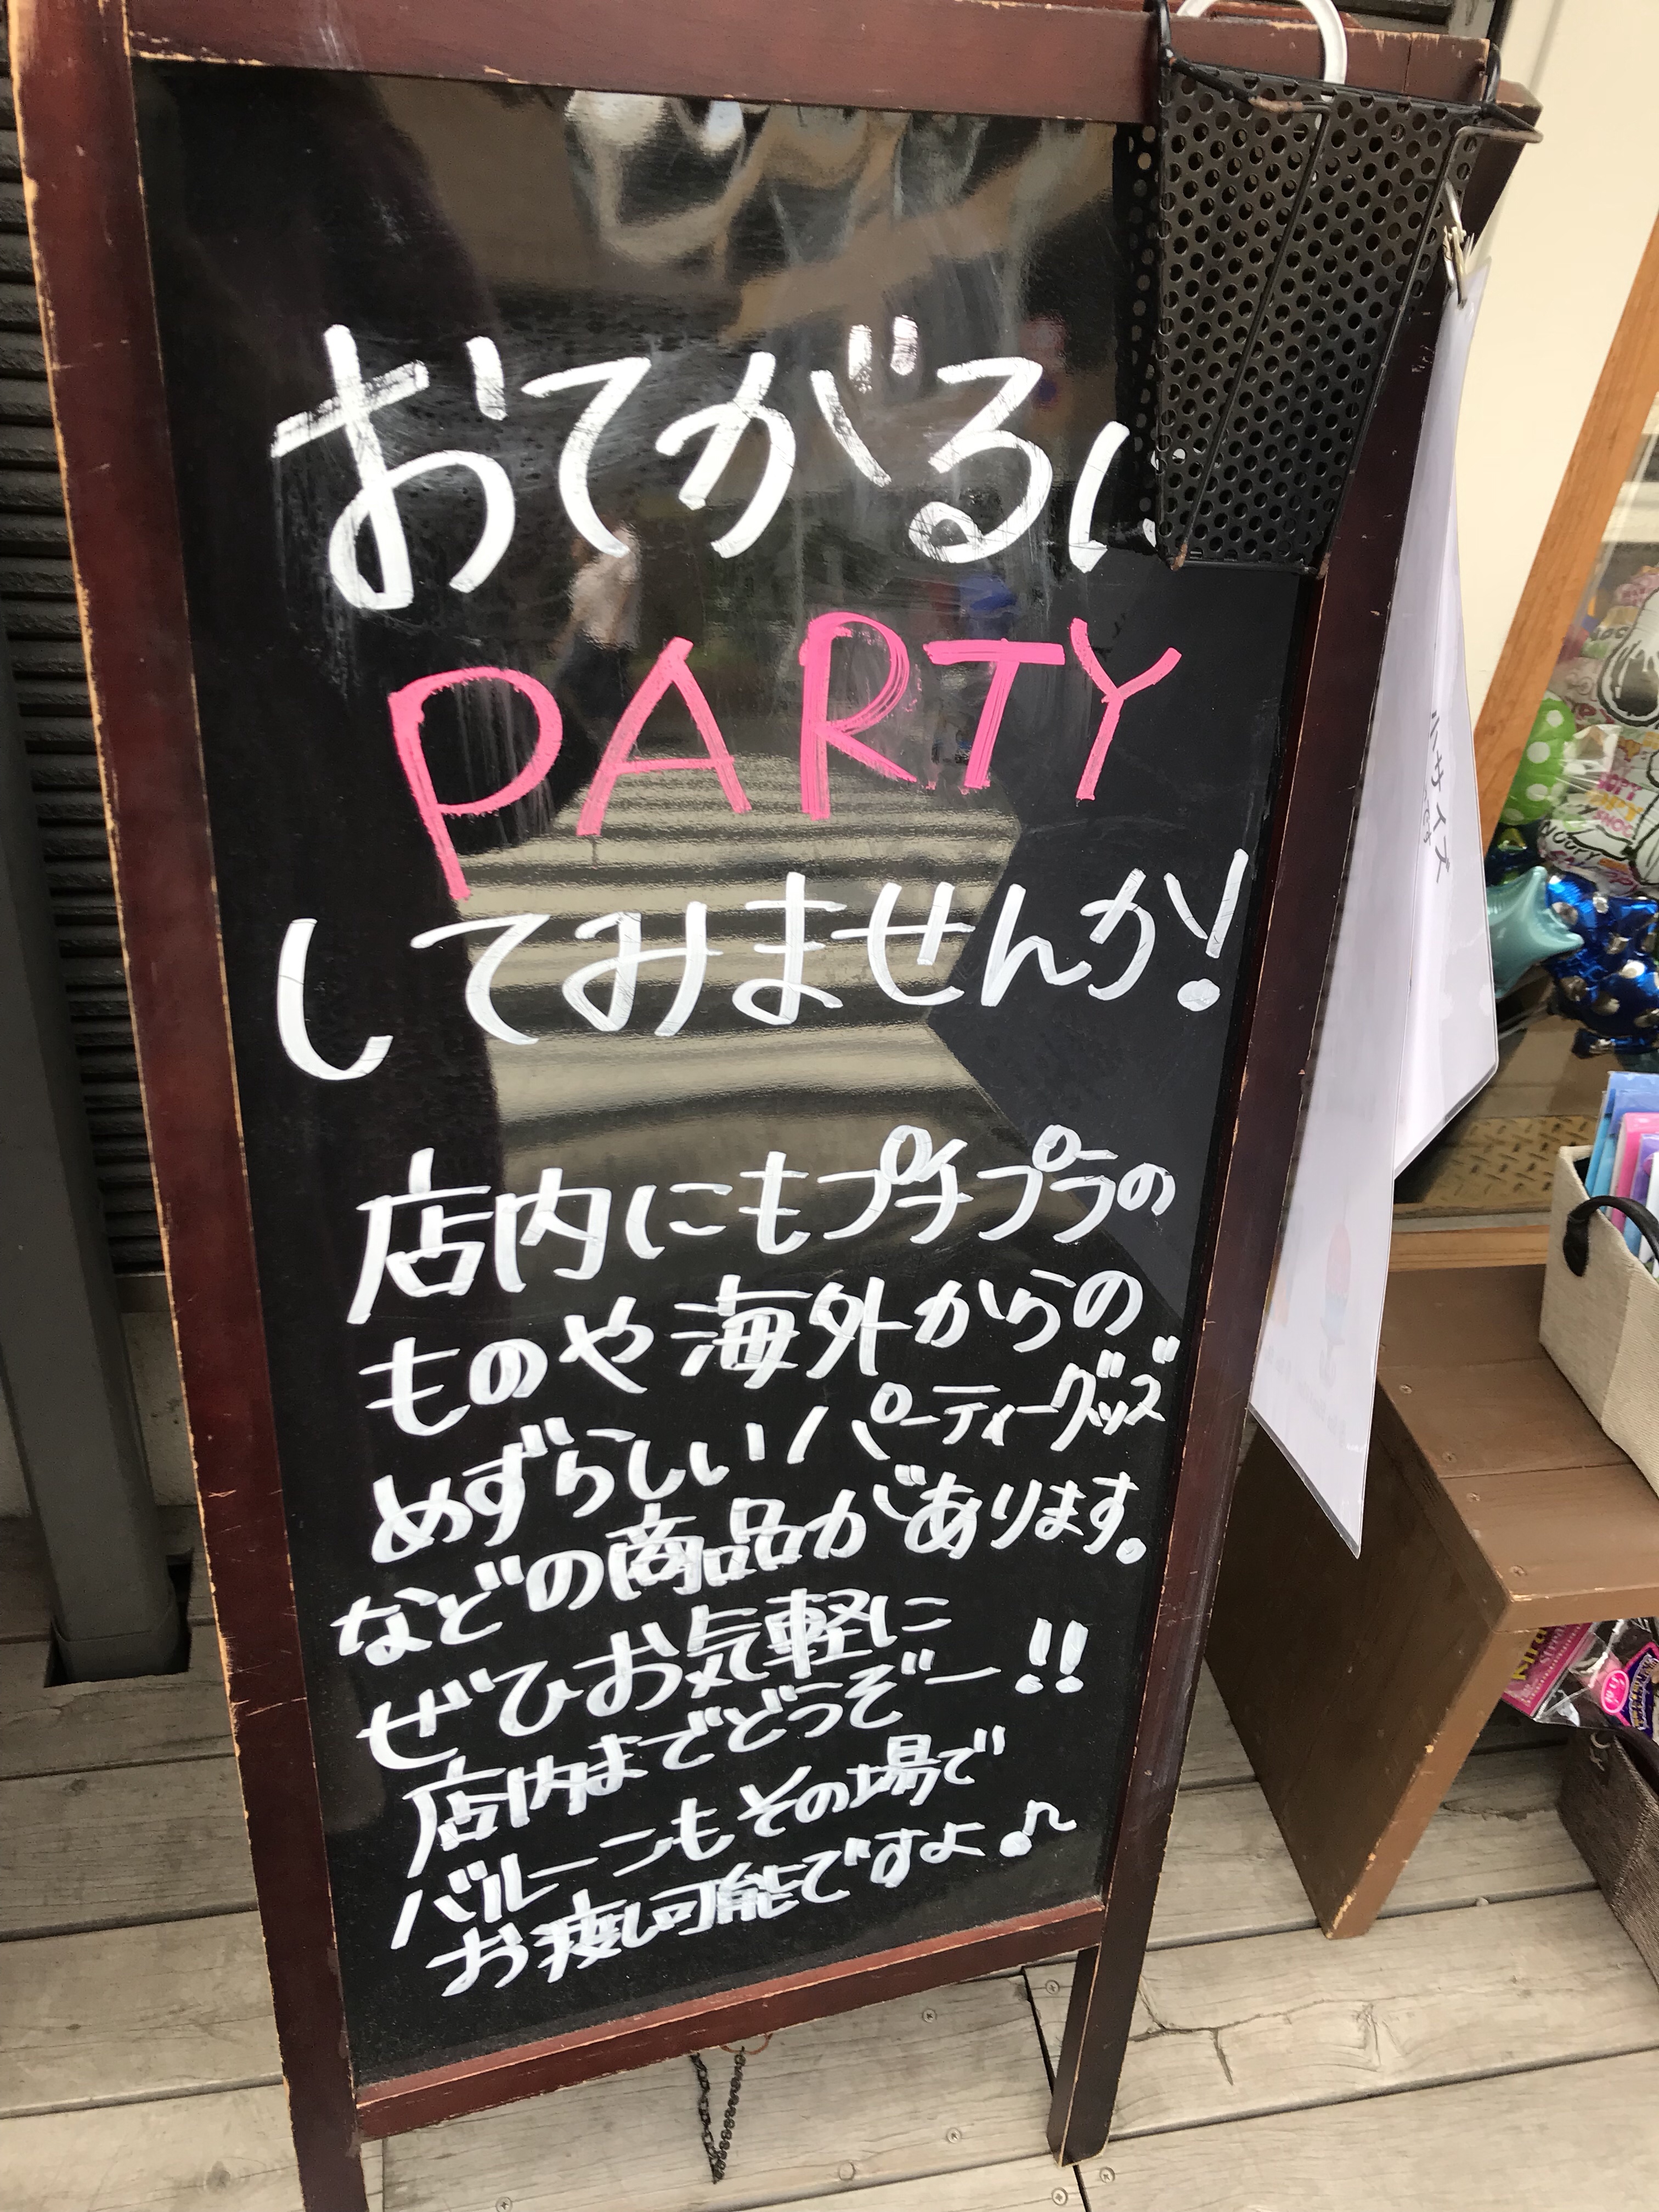 おてがるに
PARTY
してみませんか!
店内にもプチプラの
ものや海外からの
めずらしいパーティーグッズ
などの商品があります。
ぜひお気軽に
店内までどうぞー!!
バルーンもその場で
お渡し可能ですよ♪
サイズ
です